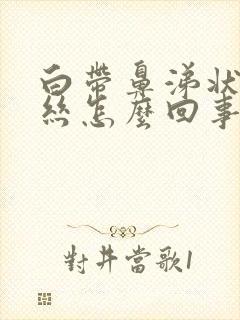 白帶鼻涕狀
絲怎麼回事
對井當歌1